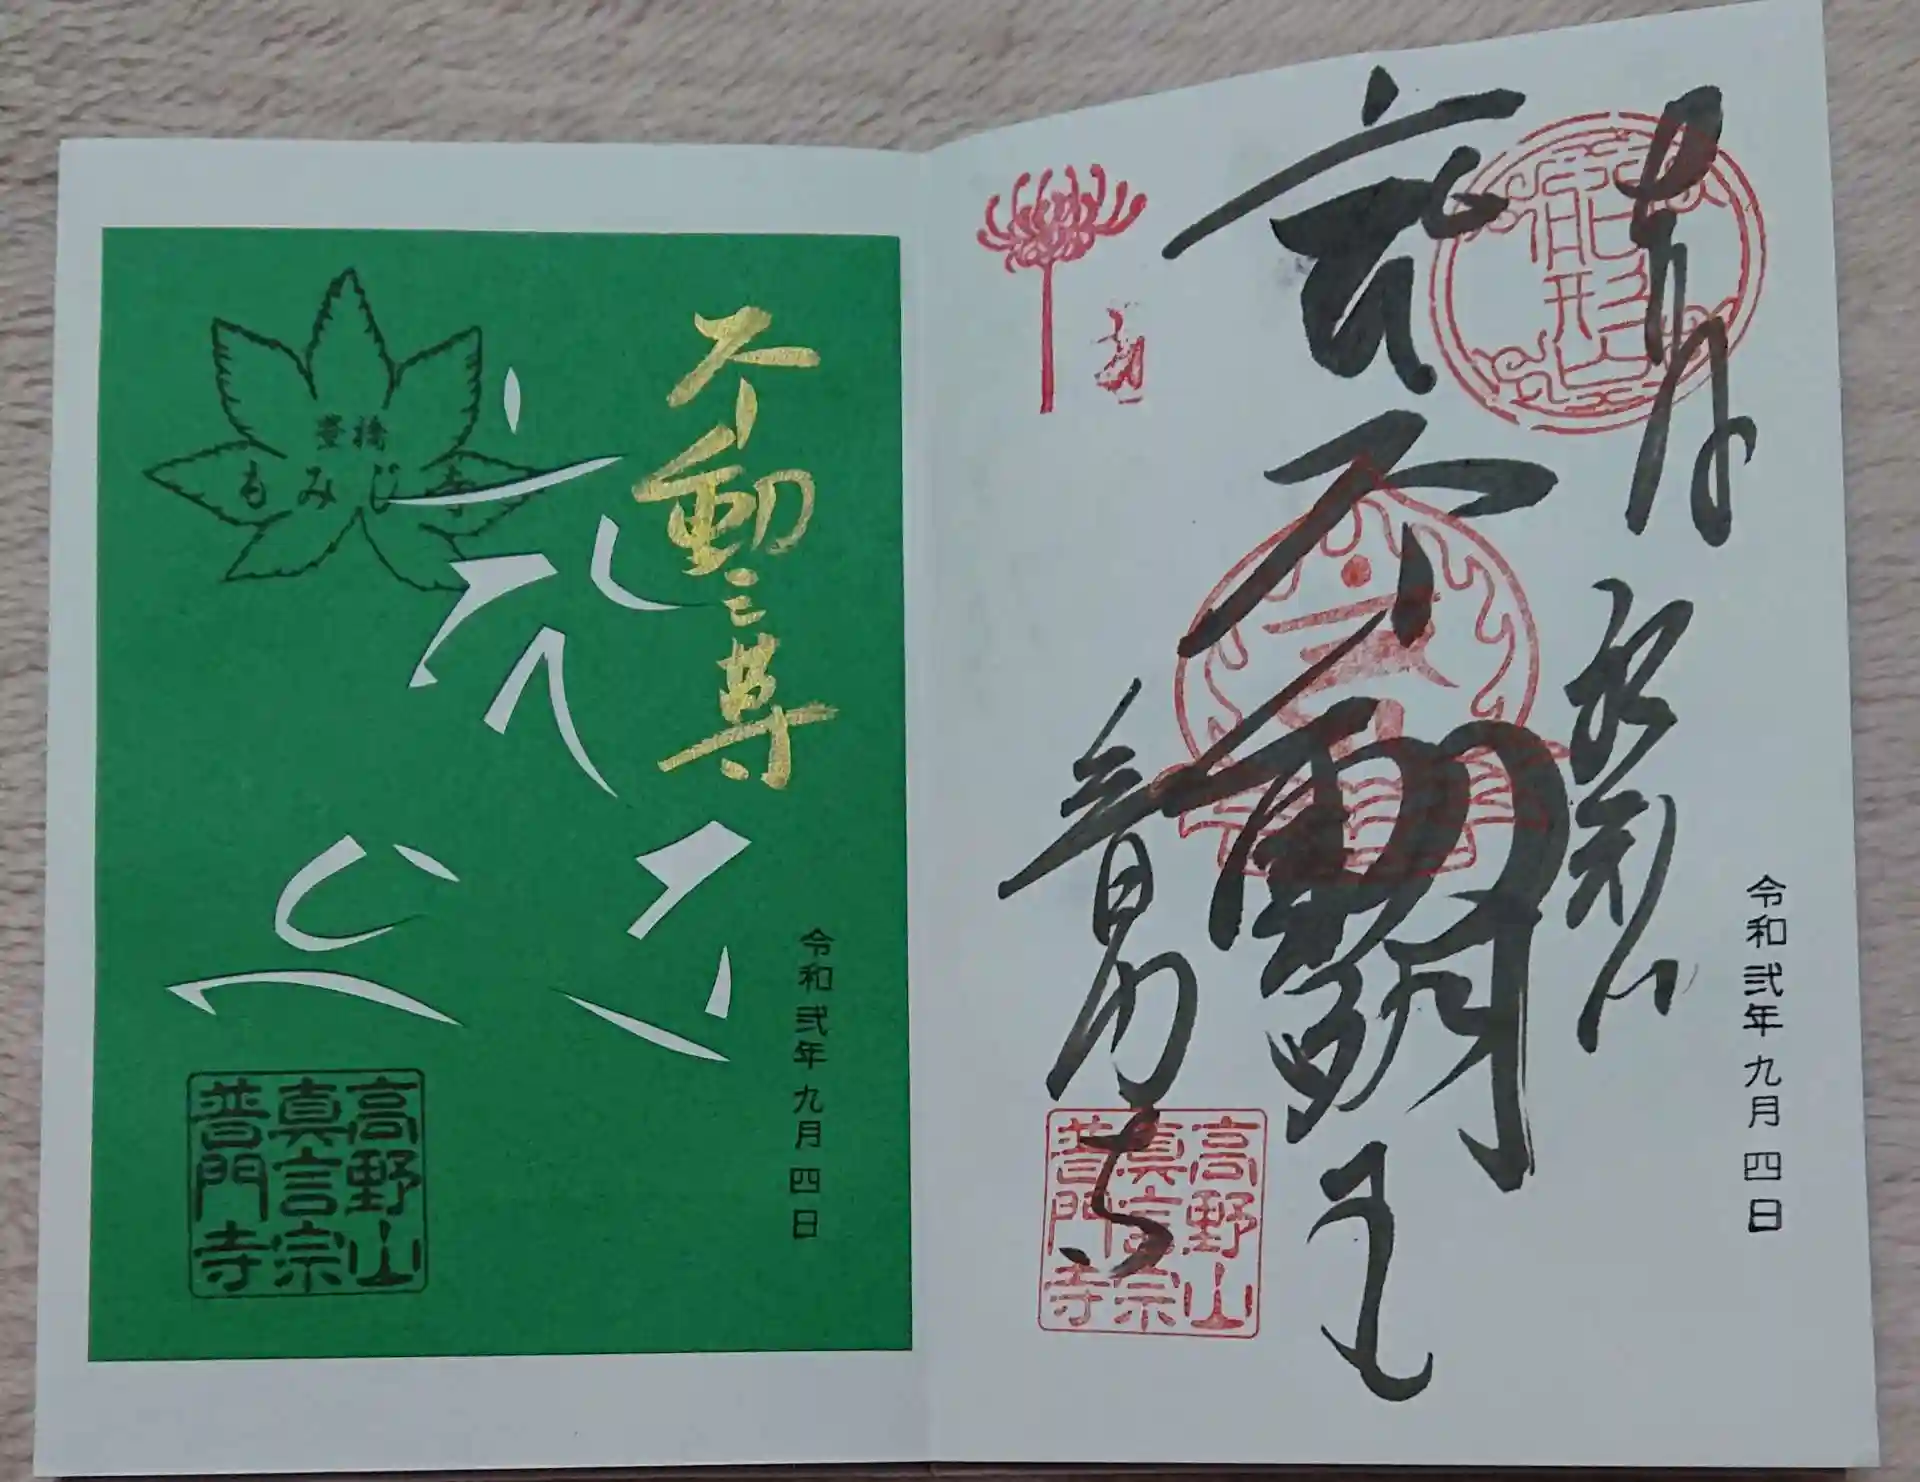 奉拝
船形山
玄 不動明王
普門寺
龍形
令和弐年九月四日
高野山
真言宗
普門寺
不動三尊
豊橋
もみじ寺
令和弐年九月四日
高野山
真言宗
普門寺